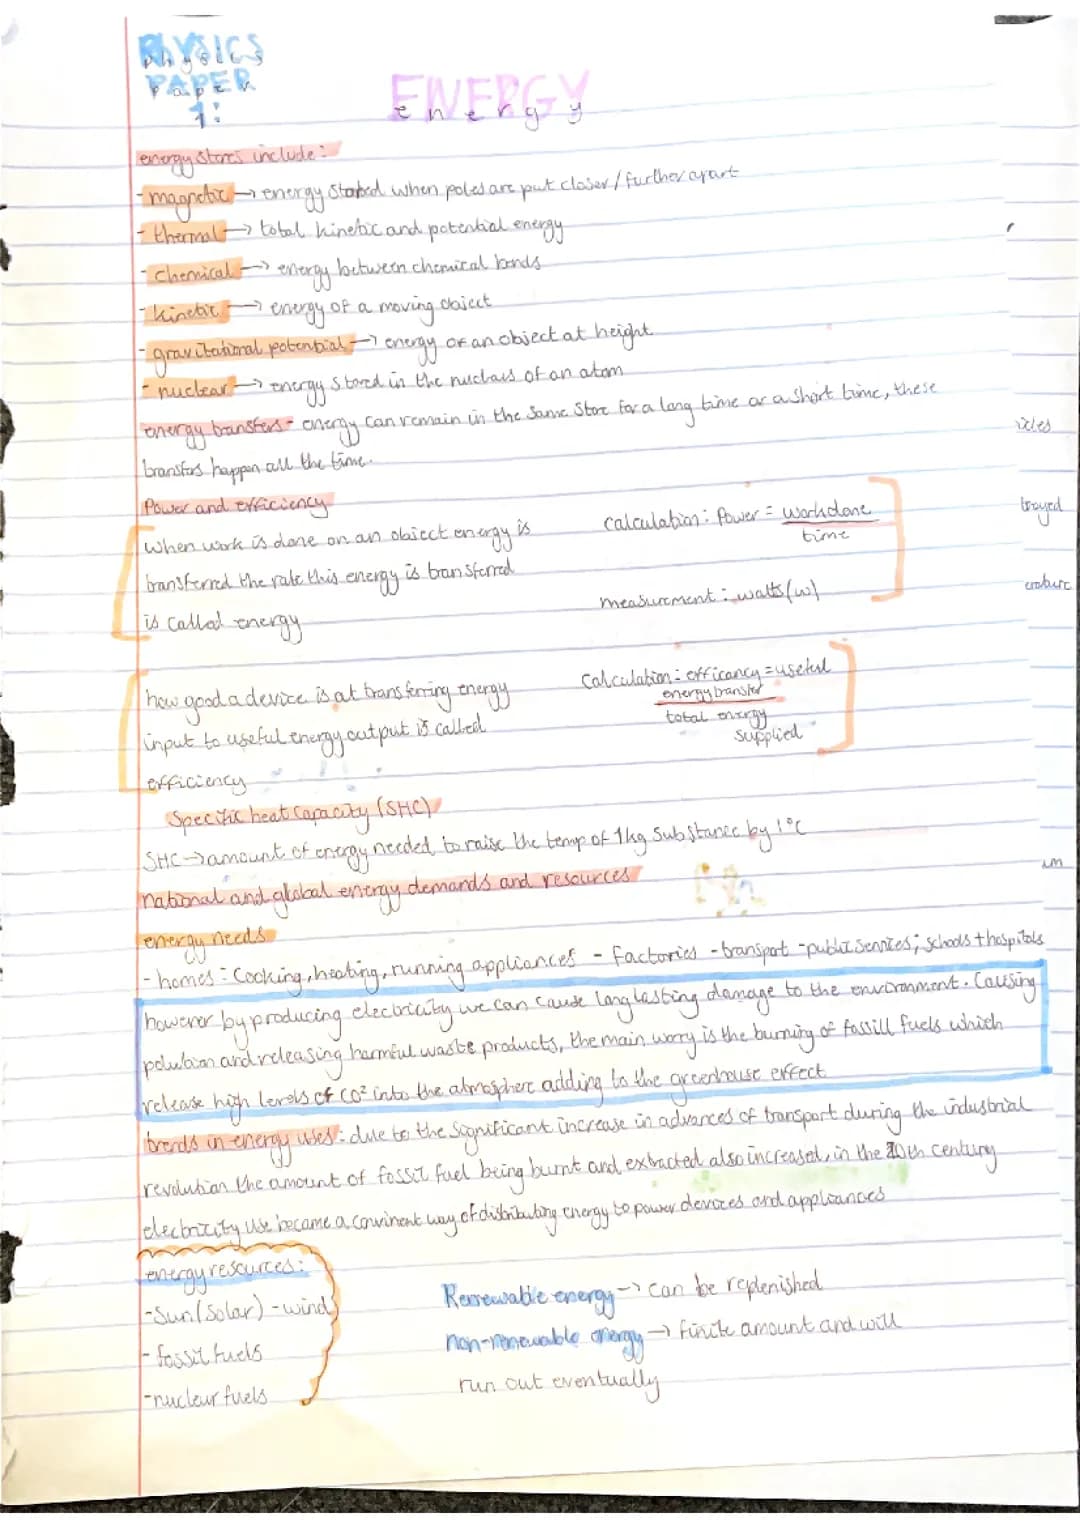 PHYSICS
PAPER
1:
ENERGY
energy stores include:
- magnetic → energy stored when poles are put closer / further apart
- thermal → total kinetic and potential energy
- chemical → energy between chemical bonds
- kinetic → energy of a moving object
- gravitational potential → energy of an object at height
- nuclear → energy stored in the nucleus of an atom
energy transfers - energy can remain in the same store for a long time or a short time, these
transfers happen all the time.
Power and efficiency
when work is done on an object energy is
transferred the rate this energy is transferred
is called energy
calculation: Power = work done
time
measurement: watts (w)
how good a device is at transferring energy
input to useful energy output is called
efficiency
calculation: efficancy = useful
energy transfer
total energy
supplied
Specific heat capacity (SHC)
SHC → amount of energy needed to raise the temp of 1kg substance by 1°C
national and global energy demands and resources
energy needs
- homes: cooking, heating, running appliances - factories - transport - public services; schools + hospitals
however by producing electricity we can cause long lasting damage to the environment. Causing
polution and releasing harmful waste products, the main worry is the burning of fossill fuels which
release high levels of CO² into the atmosphere adding to the greenhouse effect
trends in energy uses: due to the significant increase in advances of transport during the industrial
revolution the amount of fossil fuel being burnt and extracted also increased, in the 20th century
electricity use became a convinent way of distributing energy to power devices and appliances
energy resources:
- Sun (Solar) - wind
- fossil fuels
- nuclear fuels
Renewable energy → can be replenished
non-renewable energy → finite amount and will
run out eventually